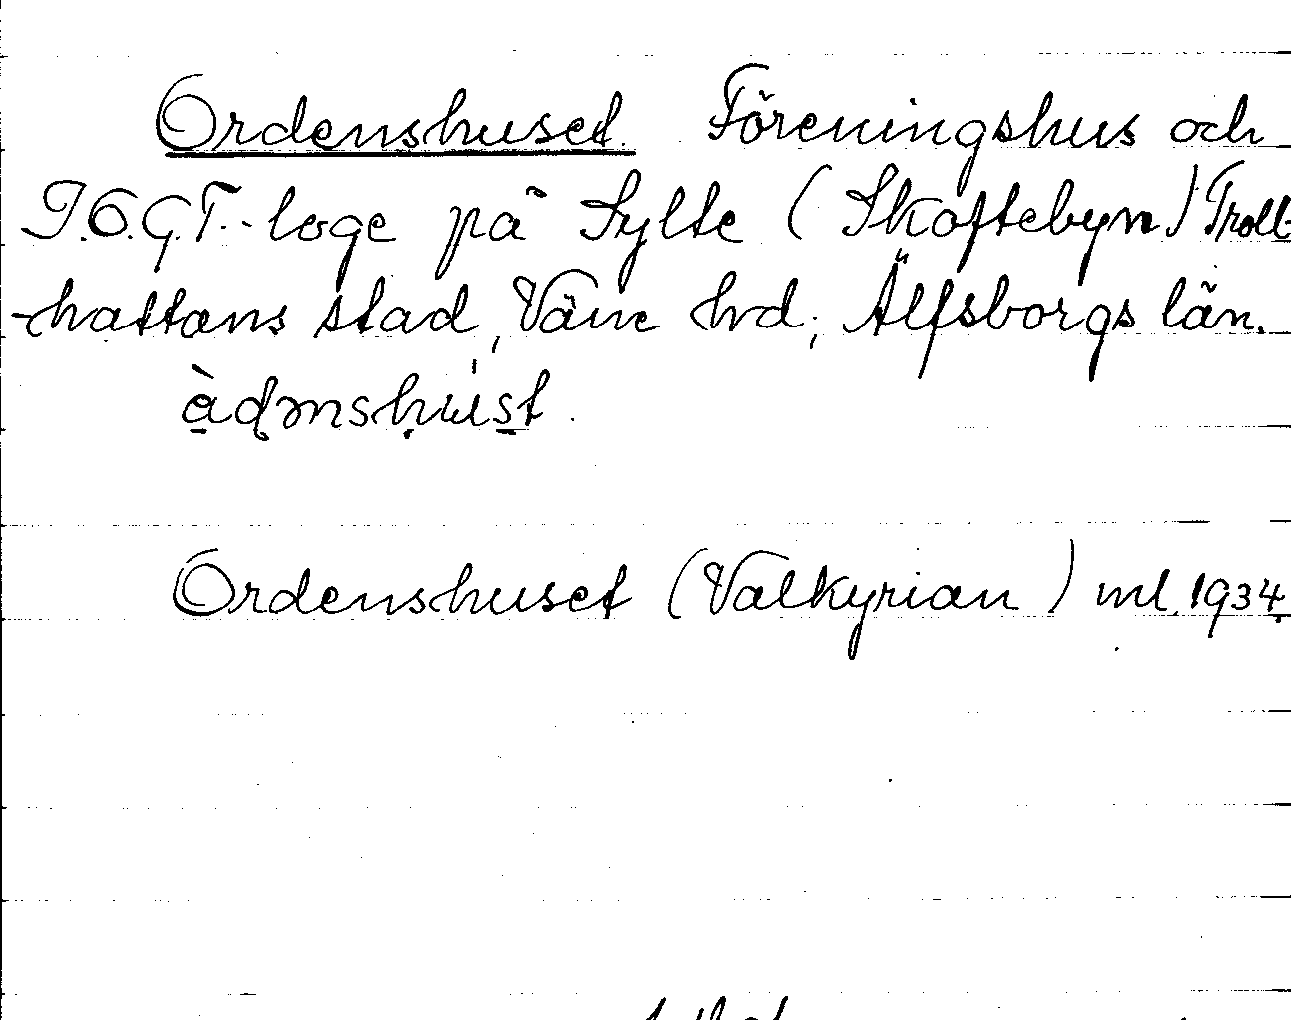 Ordenshuset. Föreningshus och
I.O.G.T.-loge på Sylte (Skoftebyn) Troll-
-hattans stad, Väne hrd; Älfsborgs län.
Ordenshuset (Valkyrian) ml. 1934